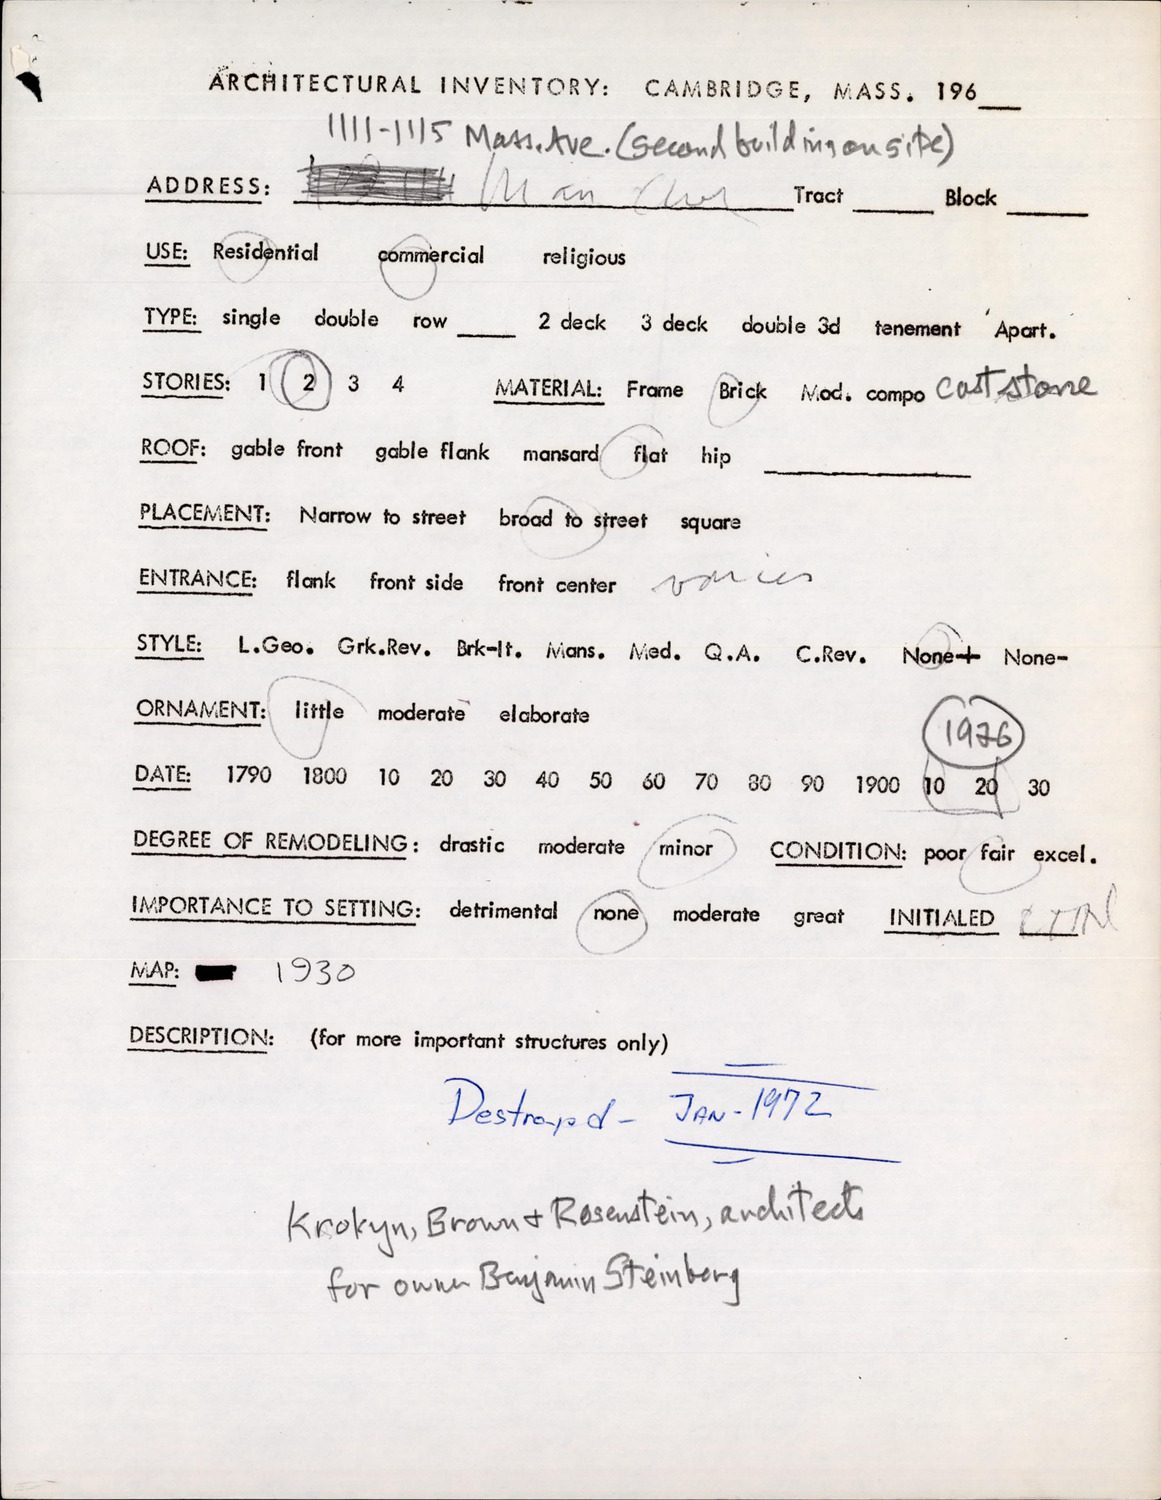 ARCHITECTURAL INVENTORY: CAMBRIDGE, MASS. 196__
1111-1115 Mass. Ave. (second building on site)
ADDRESS: Tract Block
USE: Residential commercial religious
TYPE: single double row ____ 2 deck 3 deck double 3d tenement Apart.
STORIES: 1 2 3 4 MATERIAL: Frame Brick Mod. compo cast stone
ROOF: gable front gable flank mansard flat hip
PLACEMENT: Narrow to street broad to street square
ENTRANCE: flank front side front center varies
STYLE: L.Geo. Grk.Rev. Brk-It. Mans. Med. Q.A. C.Rev. None+ None-
ORNAMENT: little moderate elaborate
1926
DATE: 1790 1800 10 20 30 40 50 60 70 80 90 1900 10 20 30
DEGREE OF REMODELING: drastic moderate minor CONDITION: poor fair excel.
IMPORTANCE TO SETTING: detrimental none moderate great INITIALED
MAP: 1930
DESCRIPTION: (for more important structures only)
Destroyed - JAN-1972
Krokyn, Brown + Rosenstein, architects
for owner Benjamin Steinberg